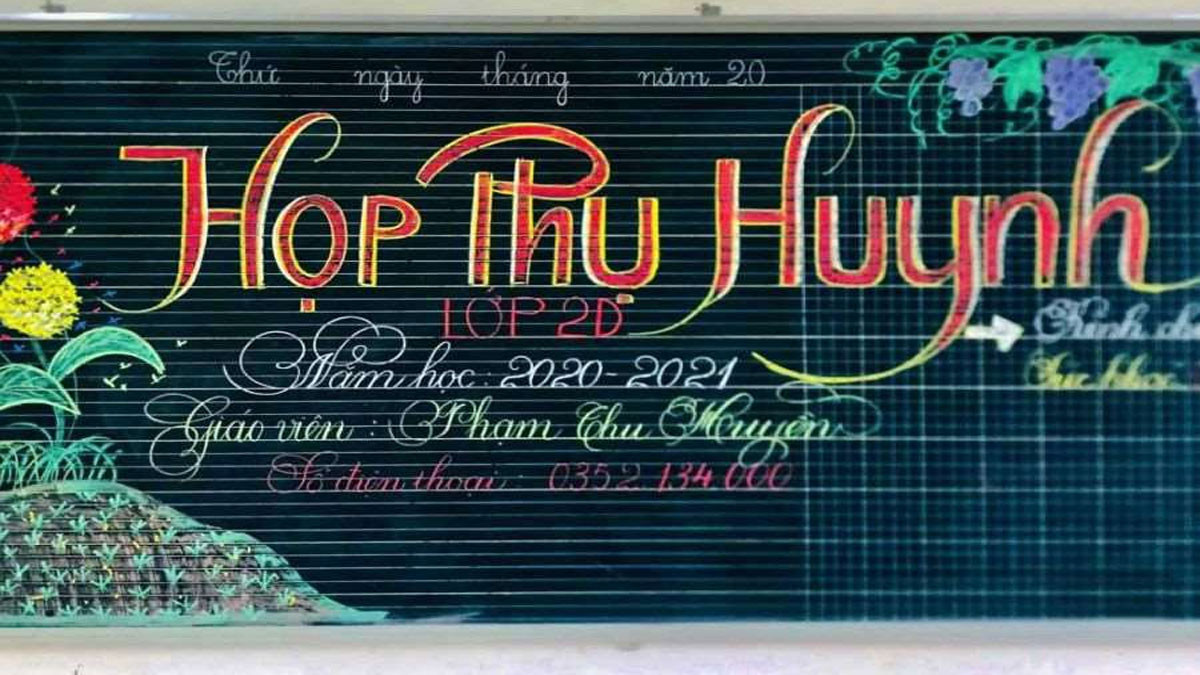 Thứ ngày tháng năm 20
Họp Phụ Huynh
LỚP 2D
Kính
Năm học : 2020-2021
Giáo viên : Phạm Thu Huyền
Số điện thoại : 0352 134 000